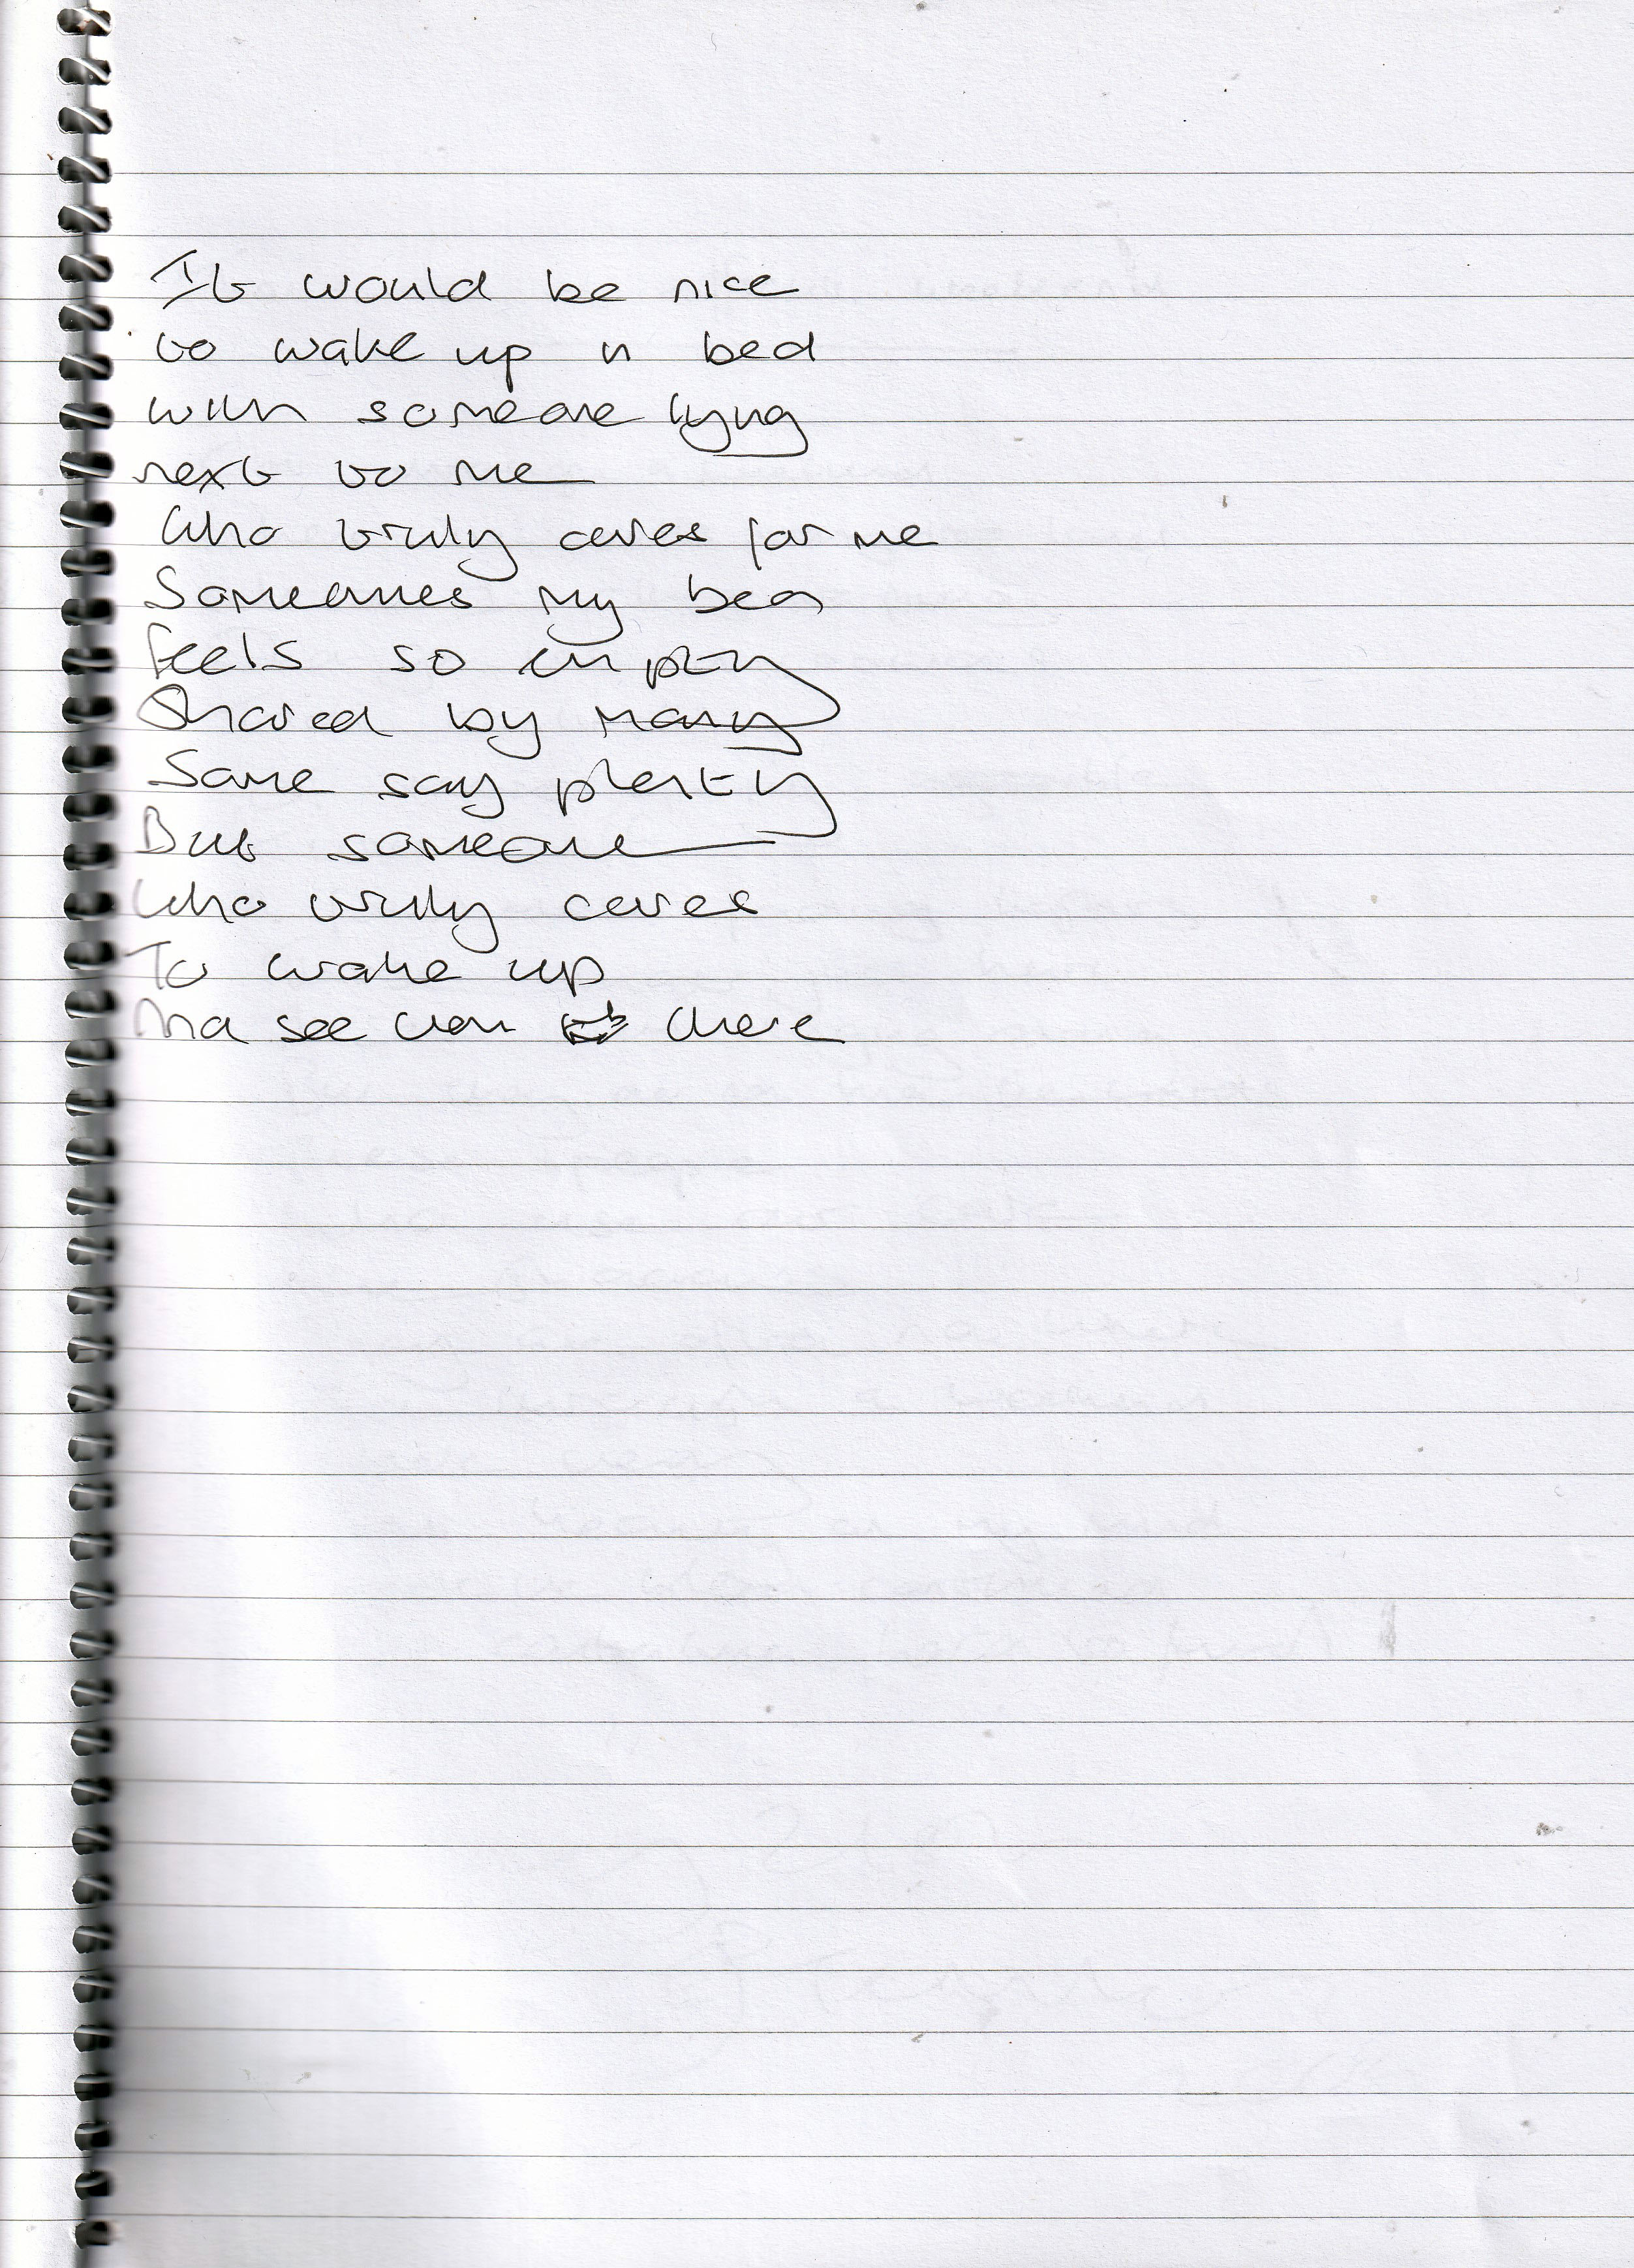 It would be nice
to wake up in bed
with someone lying
next to me
Who truly cares for me
Sometimes my bed
feels so empty
Shared by many
Some say plenty
But someone
who truly cares
To wake up
And see them there